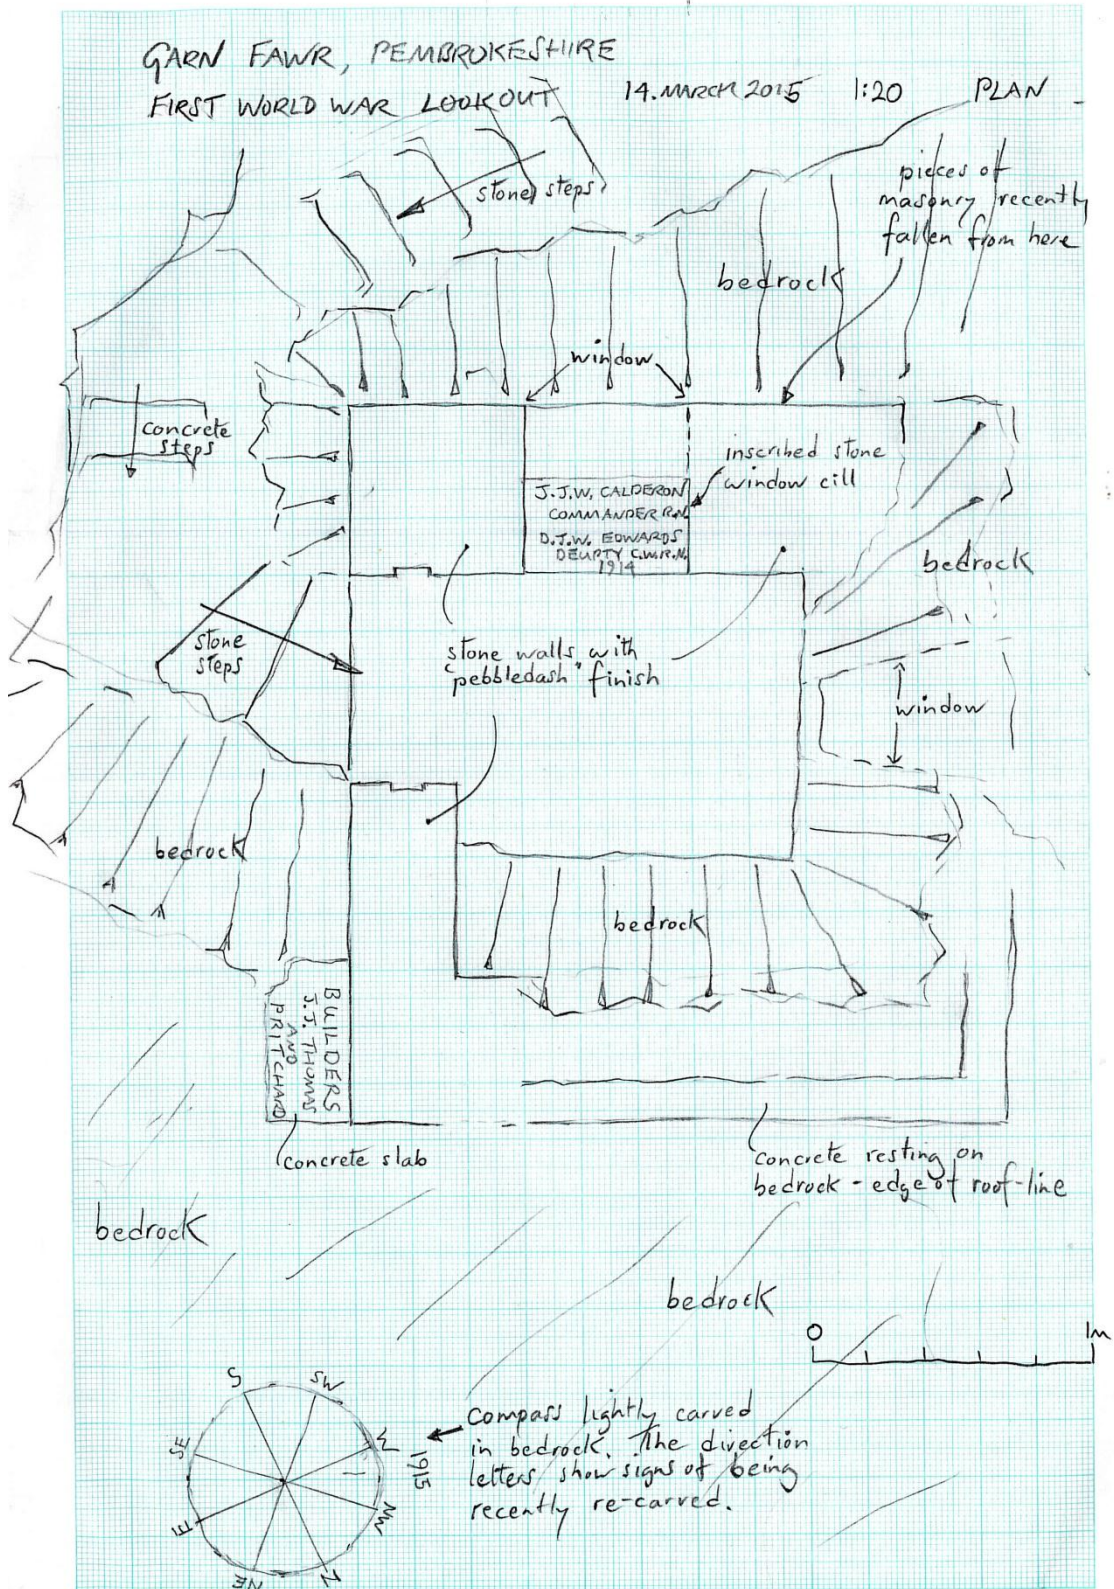 GARN FAWR, PEMBROKESHIRE
FIRST WORLD WAR LOOKOUT 14.MARCH 2015 1:20 PLAN
stone steps
pieces of
masonry recently
fallen from here
bedrock
window
concrete
steps
inscribed stone
window cill
J.J.W. CALDERON
COMMANDER R.N.
D.J.W. EDWARDS
DEUPTY C.W.R.N.
1914
bedrock
stone
steps
stone walls with
"pebbledash" finish
window
bedrock
bedrock
BUILDERS
J.J. THOMAS
AND
PRITCHARD
concrete slab
concrete resting on
bedrock - edge of roof-line
bedrock
bedrock
0 1m
S
SW
W
NW
N
NE
E
SE
1915
Compass lightly carved
in bedrock. The direction
letters show signs of being
recently re-carved.